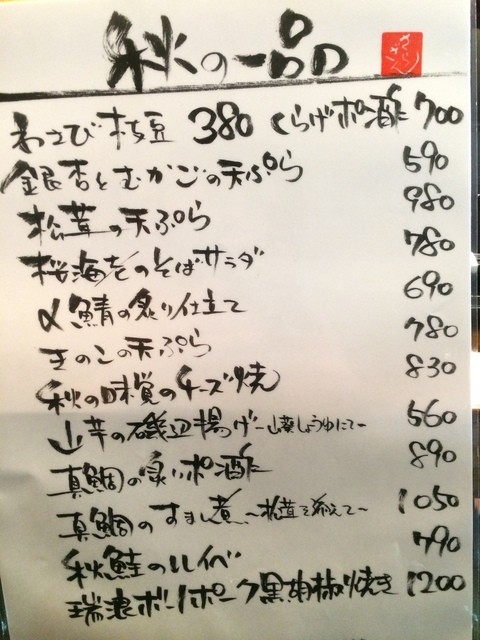 秋の一品
わさび枝豆 380 くらげポン酢 700
銀杏とむかごの天ぷら 590
松茸の天ぷら 980
桜海老のそばサラダ 780
〆鯖の炙り仕立て 690
きのこの天ぷら 780
秋の味覚のチーズ焼 830
山芋の磯辺揚げ~山葵しょうゆにて~ 560
真鯛の炙りポン酢 890
真鯛のすまし煮~松茸を添えて~ 1050
秋鮭のルイベ 790
瑞浪ボーノポーク黒胡椒焼き 1200